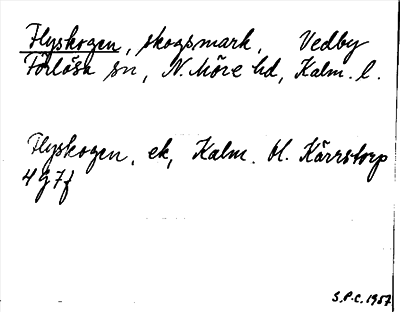 Flyskogen, skogsmark, Vedby
Förlösa sn, N. Möre hd, Kalm. l.
Flyskogen, ek, Kalm. bl. Kärrstorp
4g7f
S.P.C. 1957